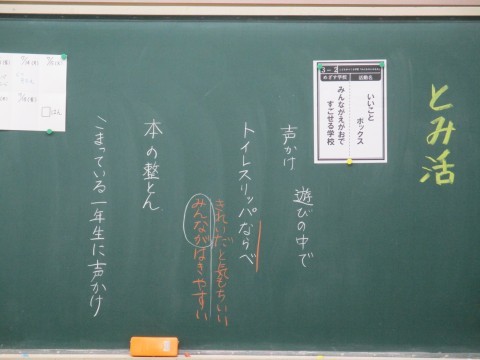 とみ活
3-2
活動名
めざす学校
いいこと ボックス
みんながえがおで
すごせる学校
声かけ 遊びの中で
トイレスリッパならべ
きれいだと気もちいい
みんながはきやすい
本の整とん
こまっている一年生に声かけ